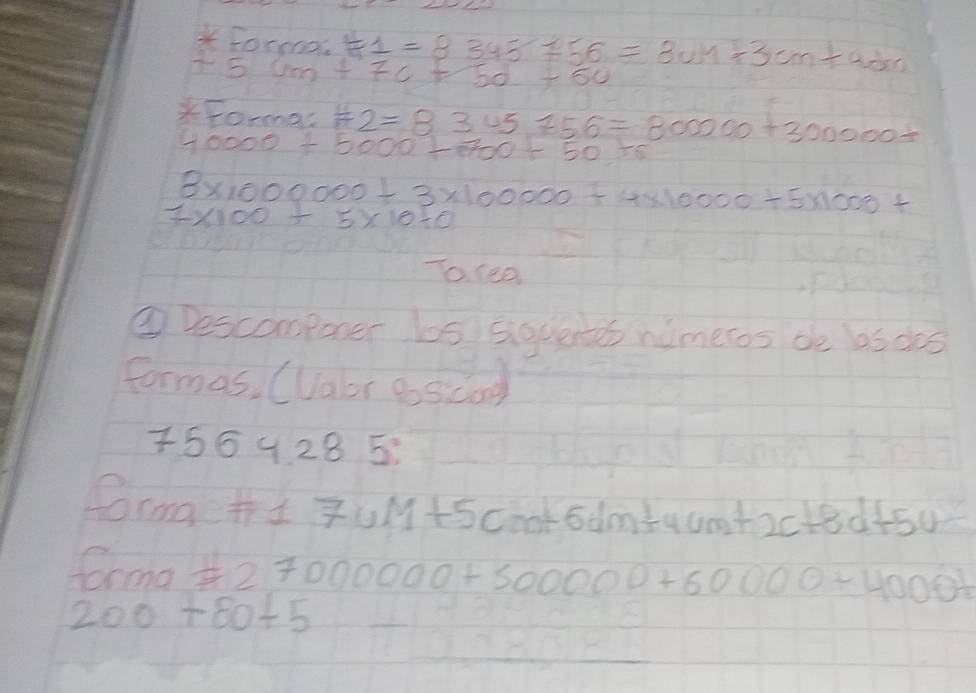 * Forma: #1 = 8 345 756 = 8uM + 3cm + 4dm
+ 5 um + 7c + 5d + 6u
* Forma: #2 = 8 345 756 = 800000 + 300000 +
40000 + 5000 + 700 + 50 + 6
8x1000000 + 3x100000 + 4x10000 + 5x1000 +
7x100 + 5x10+0
Tarea
① Descomponer los siguientes números de las dos
formas. (Valor posicional)
756 4 28 5:
forma #1 7uM+5cm+6dm+4um+2c+8d+5u
forma #2 7000000+500000+60000+4000+
200 +80+5